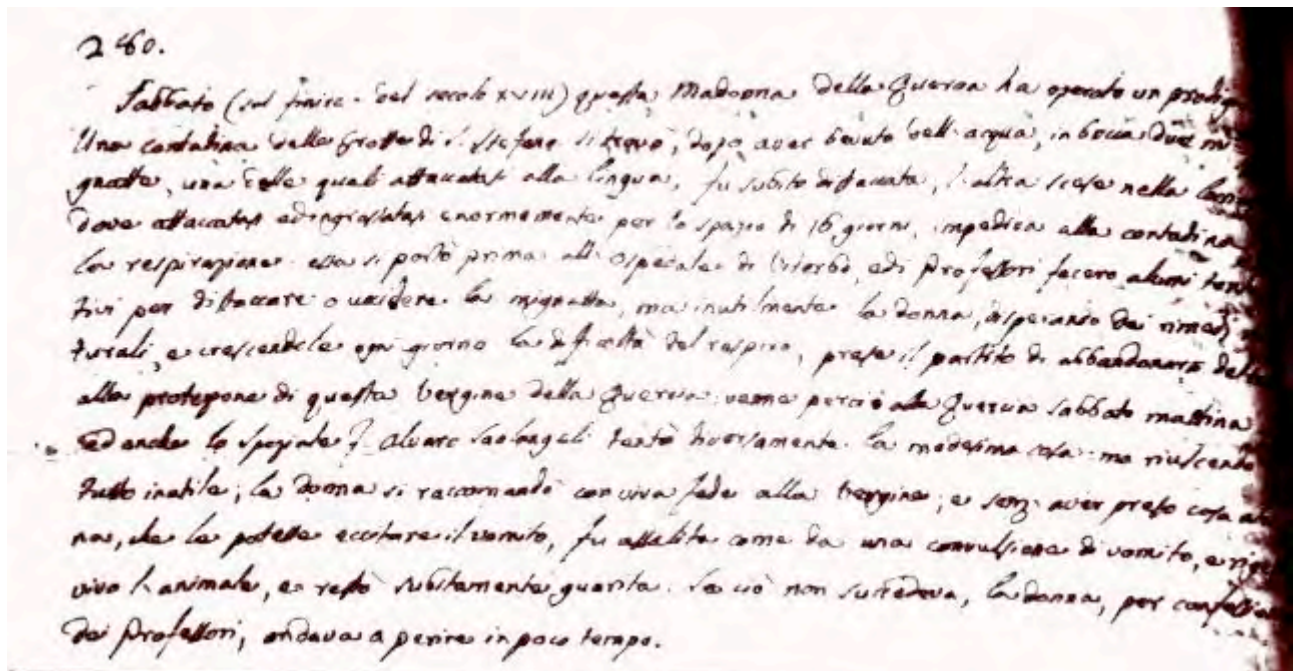 260.
Sabbato (sul finire del secolo XVIII) questa Madonna della Quercia ha operato un prodig
Una contadina delle Grotte di S. Stefano si trovò, dopo aver bevuto dell'acqua, in bocca due mi
gnatte, una delle quali attaccatasi alla lingua, fu subito distaccata, l'altra scese nella
dove attaccatasi ed ingrossatasi enormemente per lo spazio di 16 giorni, impediva alla contadina
la respirazione. essa si portò prima all'Ospedale di Viterbo, ed i Professori fecero alcuni tenta
tivi per distaccare o uccidere la mignatta, ma inutilmente la donna, disperando dei rimedj
turali, e crescendole ogni giorno la difficoltà del respiro, prese il partito di abbandonarsi del
alla protezione di questa Vergine della Quercia: venne perciò alla Quercia Sabbato mattina
ed anche lo speziale F. Alvaro tentò diversamente la medesima cosa: ma riuscendo
tutto inutile; la donna si raccomandò con viva fede alla Vergine; e senz'aver preso cosa alcu
na, che le potesse eccitare il vomito, fu assalita come da una convulsione di vomito, e
vivo l'animale, e restò subitamente guarita. Se ciò non succedeva, la donna, per confessione
dei Professori, andava a perire in poco tempo.